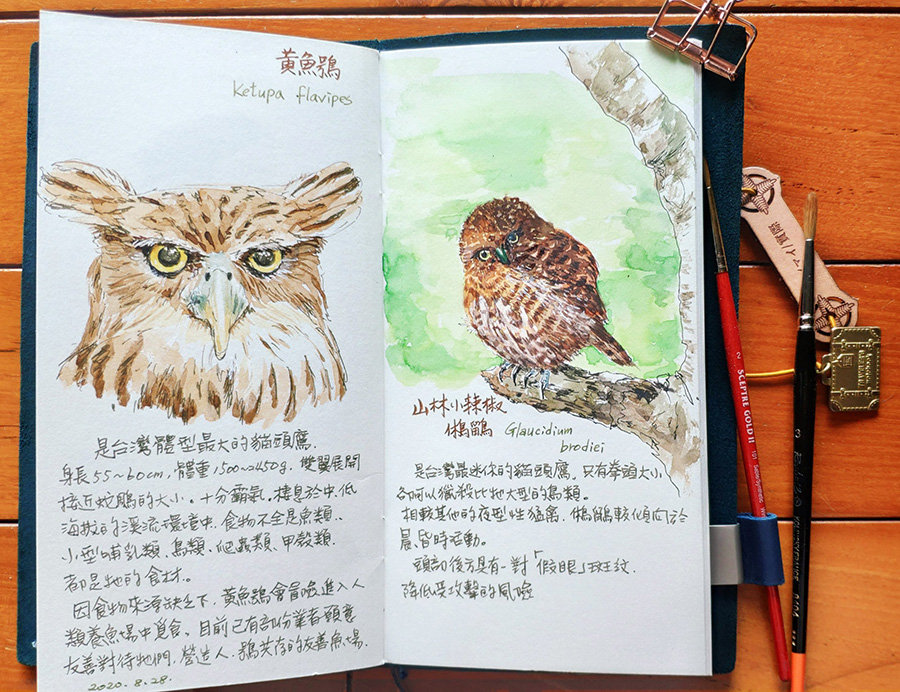 黃魚鴞
Ketupa flavipes
是台灣體型最大的貓頭鷹.
身長55~60cm, 體重1500~2450g. 雙翼展開
接近蛇鵰的大小。十分霸氣. 棲息於中.低
海拔的溪流環境中. 食物不全是魚類..
小型哺乳類、鳥類、爬蟲類、甲殼類.
都是牠的食材。
因食物來源缺乏下, 黃魚鴞會冒險進入人
類養魚場中覓食. 目前已有部份業者願意
友善對待牠們. 營造人.鴞共存的友善魚場.
2020.8.28.
山林小辣椒
鵂鶹 Glaucidium
brodiei
是台灣最迷你的貓頭鷹. 只有拳頭大小
可以獵殺比牠大型的鳥類。
相較其他的夜型性猛禽. 鵂鶹較化傾向於
晨、昏時活動。
頭部後方具有一對「假眼」斑紋.
降低受攻擊的風險
SCEPTRE GOLD II
101